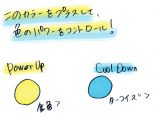 このカラーをプラスして、
色のパワーをコントロール！
Power Up
Cool Down
金色♪
ターコイズ♪